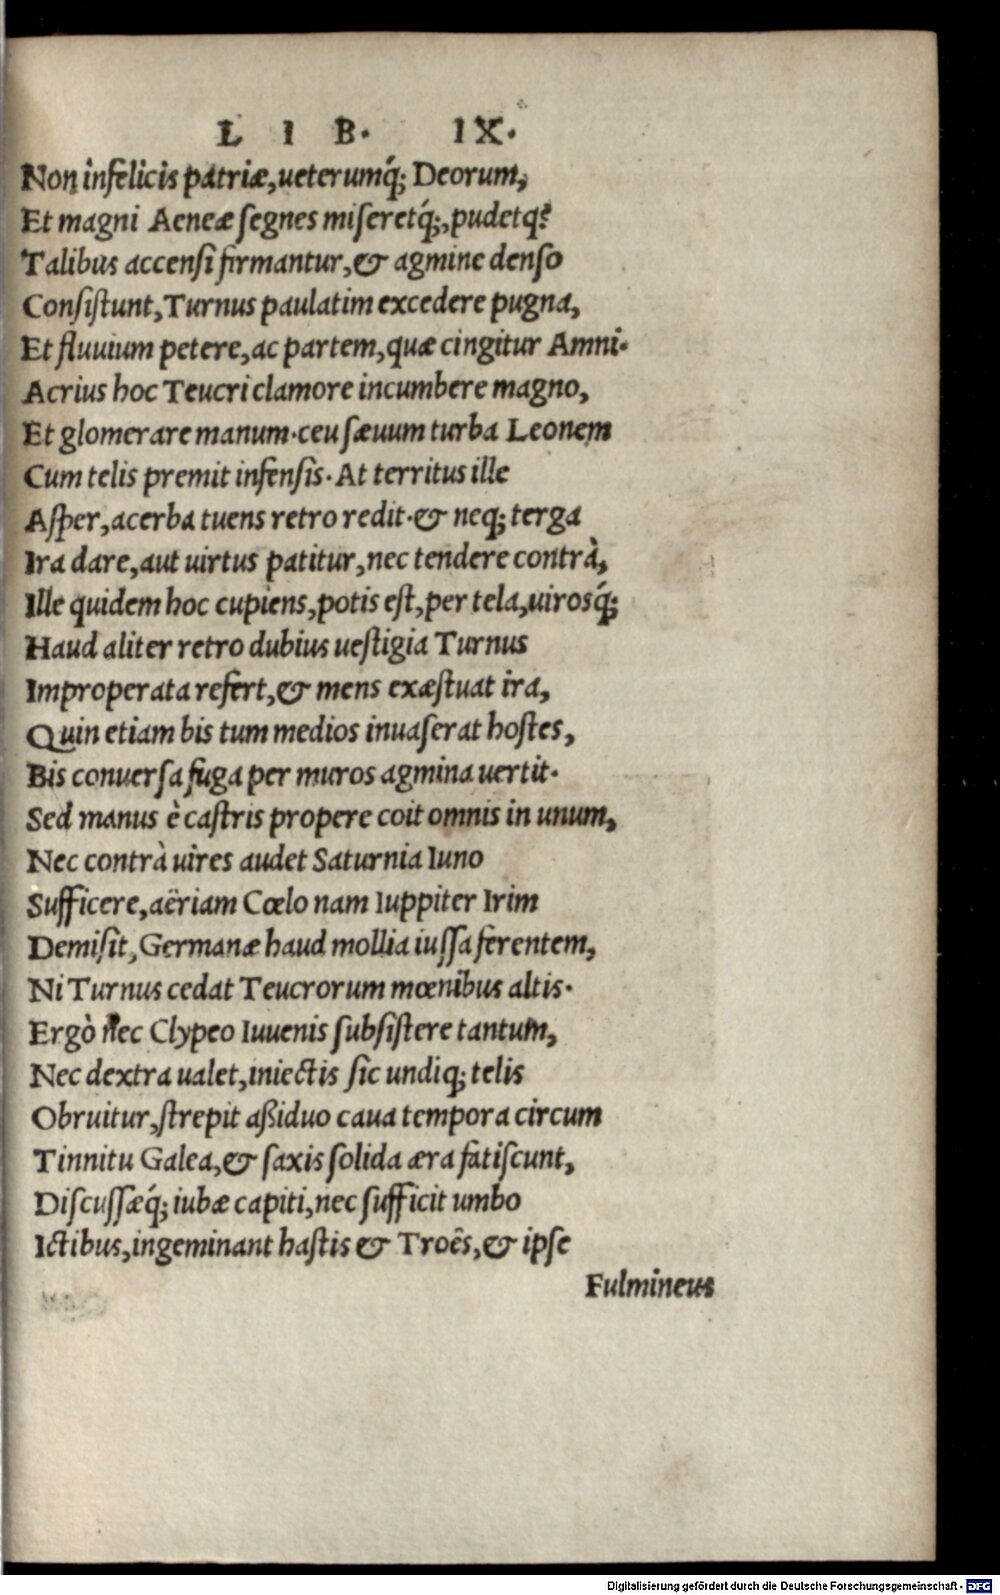 L I B. IX.
Non infelicis patriæ, ueterumq́; Deorum,
Et magni Aeneæ segnes miseretq́;, pudetq́?
Talibus accensi firmantur, & agmine denso
Consistunt, Turnus paulatim excedere pugna,
Et fluuium petere, ac partem, quæ cingitur Amni.
Acrius hoc Teucri clamore incumbere magno,
Et glomerare manum. ceu sæuum turba Leonem
Cum telis premit infensis. At territus ille
Asper, acerba tuens retro redit. & neq; terga
Ira dare, aut uirtus patitur, nec tendere contrà,
Ille quidem hoc cupiens, potis est, per tela, uirosq́;
Haud aliter retro dubius uestigia Turnus
Improperata refert, & mens exæstuat ira,
Quin etiam bis tum medios inuaserat hostes,
Bis conuersa fuga per muros agmina uertit.
Sed manus è castris propere coit omnis in unum,
Nec contrà uires audet Saturnia Iuno
Sufficere, aëriam Cœlo nam Iuppiter Irim
Demisit, Germanæ haud mollia iussa ferentem,
Ni Turnus cedat Teucrorum mœnibus altis.
Ergò nec Clypeo Iuuenis subsistere tantum,
Nec dextra ualet, iniectis sic undiq; telis
Obruitur, strepit aßiduo caua tempora circum
Tinnitu Galea, & saxis solida æra fatiscunt,
Discussæq́; iubæ capiti, nec sufficit umbo
Ictibus, ingeminant hastis & Troês, & ipse
Fulmineus
Digitalisierung gefördert durch die Deutsche Forschungsgemeinschaft - DFG